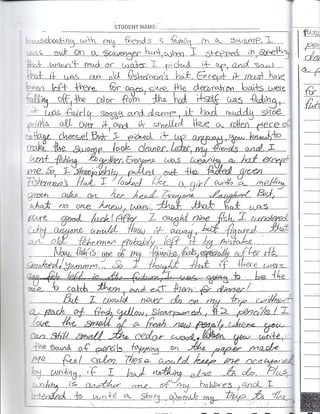 STUDENT NAME:
houseboating with my friends & family in a swamp. I
was out on a scavenger hunt, when I stepped in something
that wasn't mud or water. I picked it up, and saw
that it was an old fisherman's hat. Except it must have
been left there for ages, since the decoration baits were
falling off, the color from the hat itself was fading,
it was fairly soggy and damp, it had muddy shoe
prints all over it, and it smelled like a rotten piece of
cottage cheese! But I picked it up anyway, you know, to
make the swamp look cleaner. Later, my friends and I
went fishing together. Everyone was wearing a hat except
me. So, I sheepishly pulled out the faded green
Fisherman's Hat. I looked like a girl with a melting
green cake on her head. Everyone laughed. But,
what no one knew, was that that hat was
pure good luck! After I caught nine fish, I wondered
why anyone would throw it away, but figured that
an old fisherman probably left it by mistake.
Now, fish is one of my favorite, foods, especially after it's
smoked! Yummm... So I thought that if there was
fish left in the future, I was going to be the
one to catch them, and eat them for dinner!
But I would never do on my trip without
a pack of fresh, yellow, sharpened, #2 pencils! I
love the smell of a fresh new pencil, where you
can still smell the cedar wood. When you write,
the sound of pencils tapping on the paper made
me feel calm. These would keep me occupied
by writing, if I had nothing else to do. Plus,
writing is another one of my hobbies, and I
intended to write a story about my trip to the